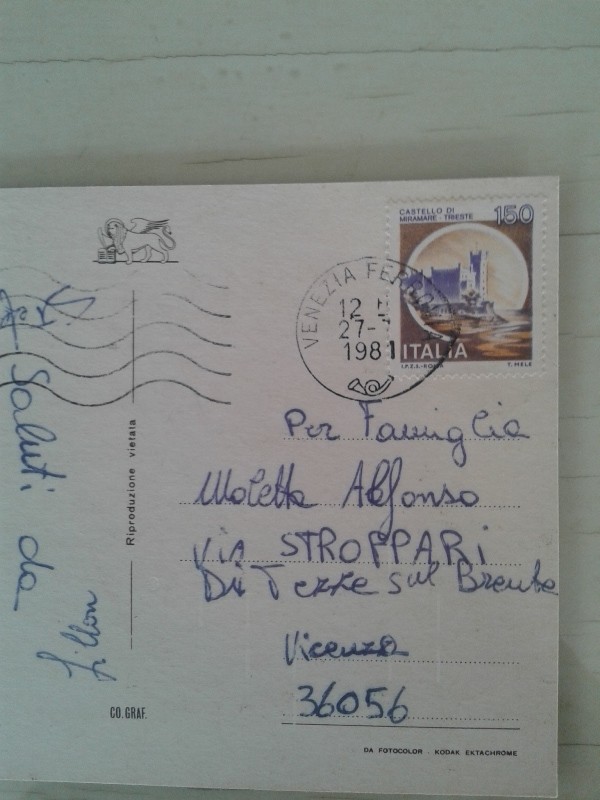 CASTELLO DI
MIRAMARE - TRIESTE
150
ITALIA
I.P.Z.S. - ROMA
T. MELE
VENEZIA FERROV
12
27-7
1981
Saluti da
Riproduzione vietata
Per Famiglia
Moletta Alfonso
Via STROPPARI
Di Tezze sul Brenta
Vicenza
36056
CO. GRAF.
DA FOTOCOLOR - KODAK EKTACHROME